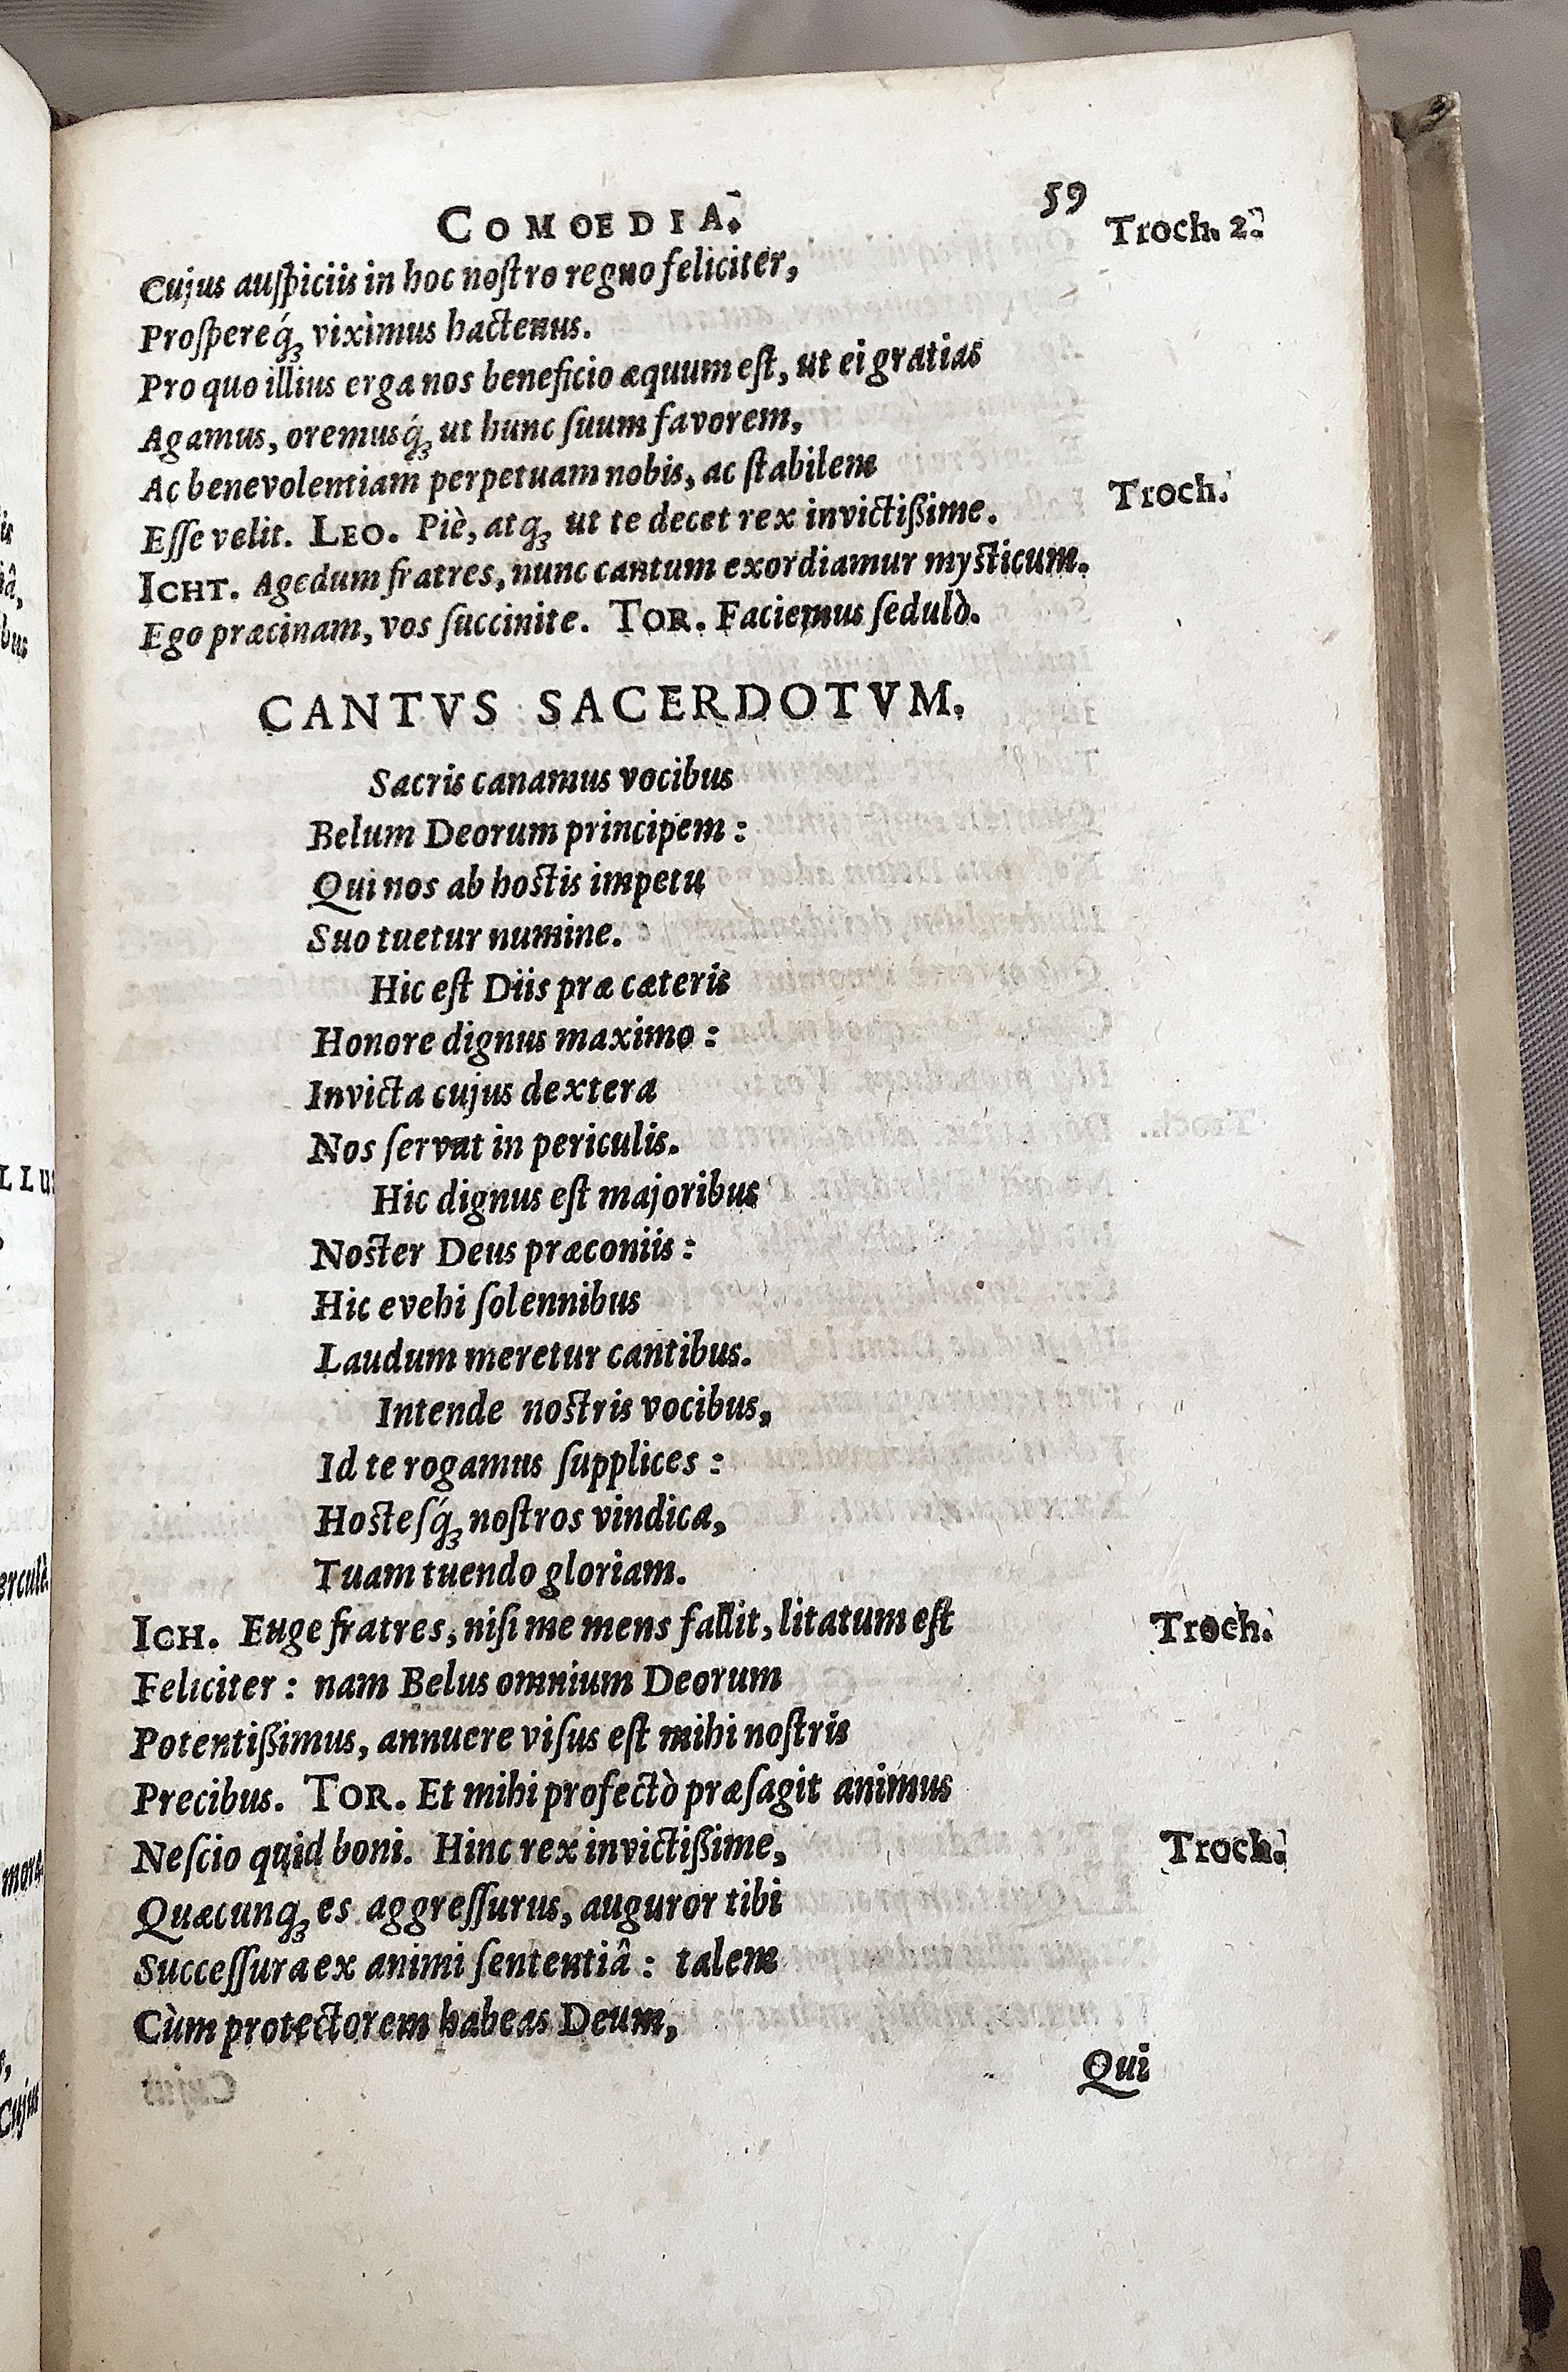 COMOEDIA. 59
Cujus auſpiciis in hoc noſtro regno feliciter, Troch. 2.
Proſpereq́ꝫ viximus hactenus.
Pro quo illius erga nos beneficio æquum eſt, ut ei gratias
Agamus, oremusq́ꝫ ut hunc ſuum favorem,
Ac benevolentiam perpetuam nobis, ac ſtabilem
Eſſe velit. LEO. Piè, atqꝫ ut te decet rex invictißime. Troch.
ICHT. Agedum fratres, nunc cantum exordiamur myſticum.
Ego præcinam, vos ſuccinite. TOR. Faciemus ſedulò.
CANTVS SACERDOTVM.
Sacris canamus vocibus
Belum Deorum principem :
Qui nos ab hoſtis impetu
Suo tuetur numine.
Hic eſt Diis præ cæteris
Honore dignus maximo :
Invicta cujus dextera
Nos ſervat in periculis.
Hic dignus eſt majoribus
Noſter Deus præconiis :
Hic evehi ſolennibus
Laudum meretur cantibus.
Intende noſtris vocibus,
Id te rogamus ſupplices :
Hoſteſq́ꝫ noſtros vindica,
Tuam tuendo gloriam.
ICH. Euge fratres, niſi me mens fallit, litatum eſt Troch.
Feliciter : nam Belus omnium Deorum
Potentißimus, annuere viſus eſt mihi noſtris
Precibus. TOR. Et mihi profectò præſagit animus
Neſcio quid boni. Hinc rex invictißime, Troch.
Quæcunqꝫ es aggreſſurus, auguror tibi
Succeſſura ex animi ſententiâ : talem
Cùm protectorem habeas Deum,
Qui